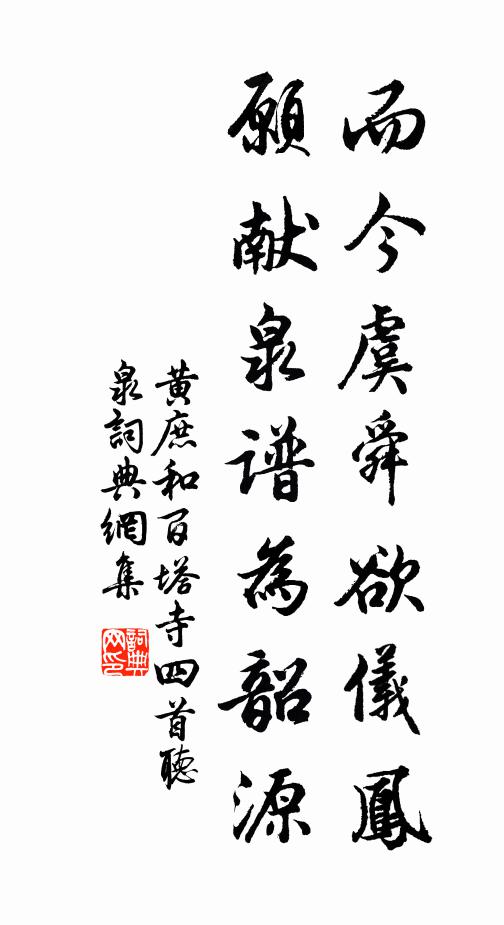 而今虞舜欲儀鳳
願献泉谱為韶源
黃庶和百塔寺四首聽
泉詞典網集
詞典网印